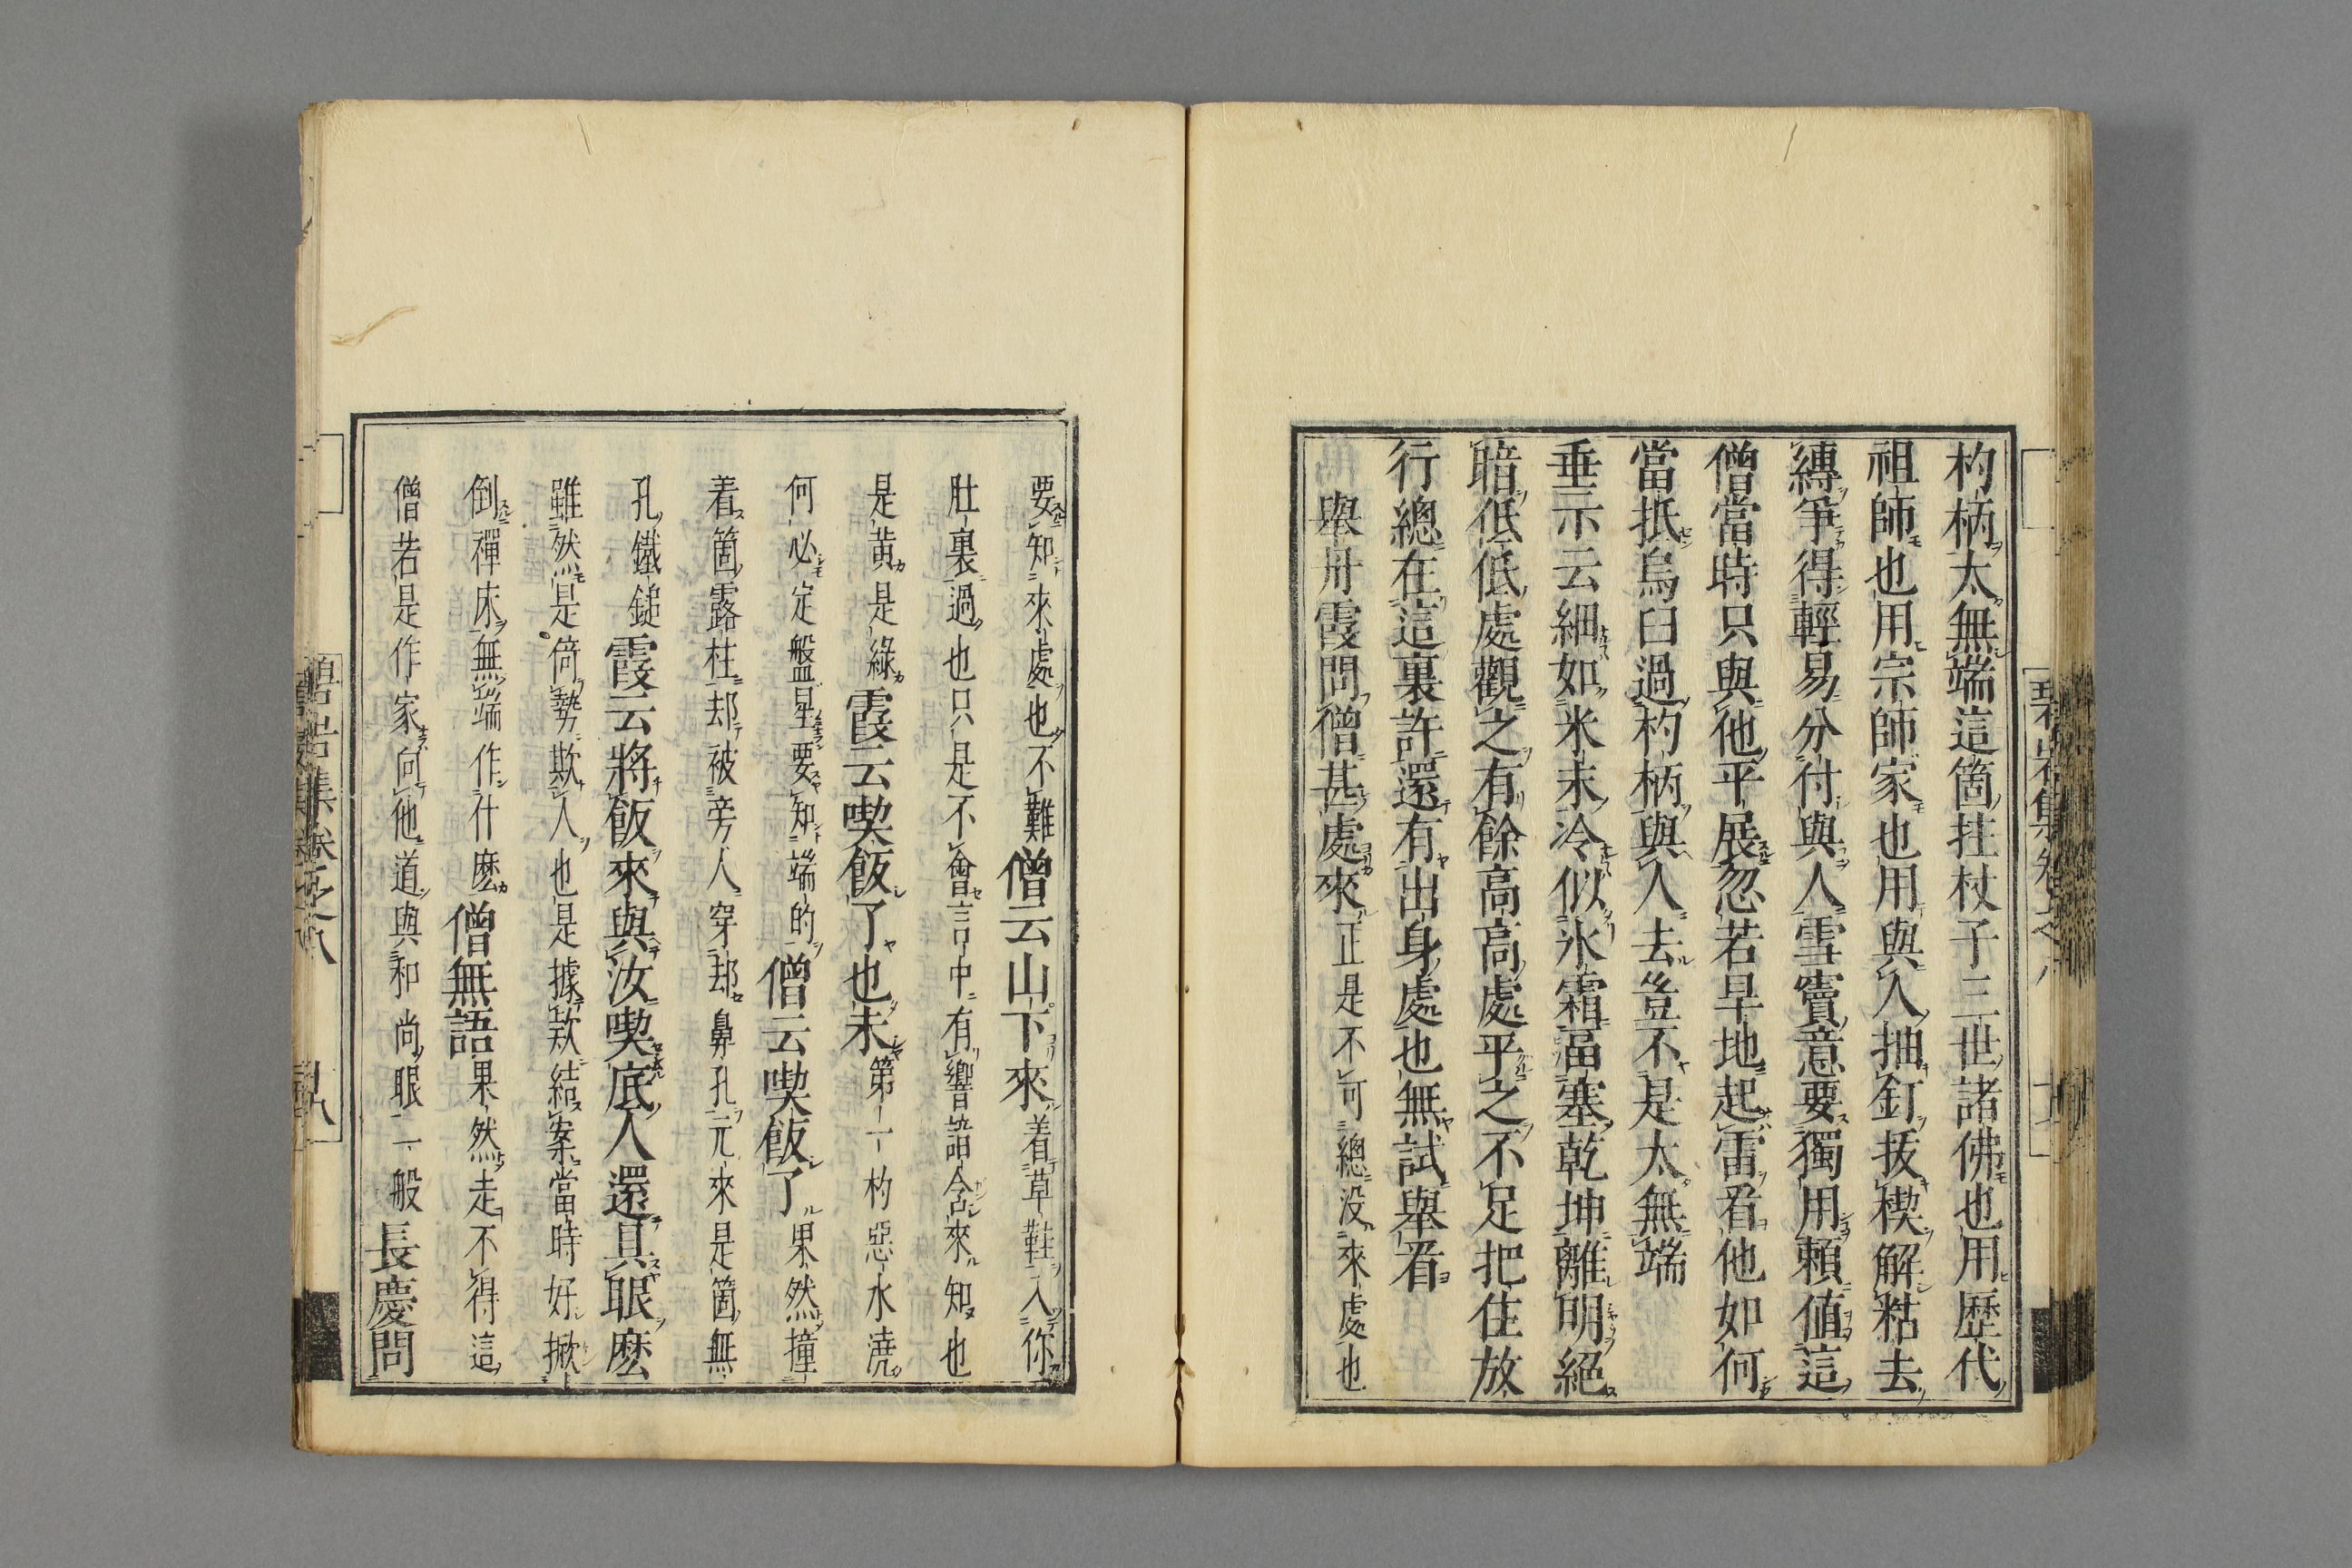 杓柄太無端這箇拄杖子三世諸佛也用歷代
祖師也用宗師家也用與人抽釘拔楔解粘去
縛爭得輕易分付與人雪竇意要獨用賴值這
僧當時只與他平展忽若旱地起雷看他如何
當抵烏臼過杓柄與人去豈不是太無端
垂示云細如米末冷似氷霜畐塞乾坤離明絕
暗低低處觀之有餘高高處平之不足把住放
行總在這裏許還有出身處也無試舉看
舉丹霞問僧甚處來正是不可總没來處也
要知來處也不難僧云山下來着草鞋入你
肚裏過也只是不會言中有響諳含來知也
是黄是綠霞云喫飯了也未第一杓惡水澆
何必定盤星要知端的僧云喫飯了果然撞
着箇露柱却被旁人穿却鼻孔元來是箇無
孔鐵鎚霞云將飯來與汝喫底人還具眼麽
雖然是倚勢欺人也是據欵結案當時好掀
倒禪床無端作什麽僧無語果然走不得這
僧若是作家向他道與和尚眼一般長慶問
碧岩集卷之八